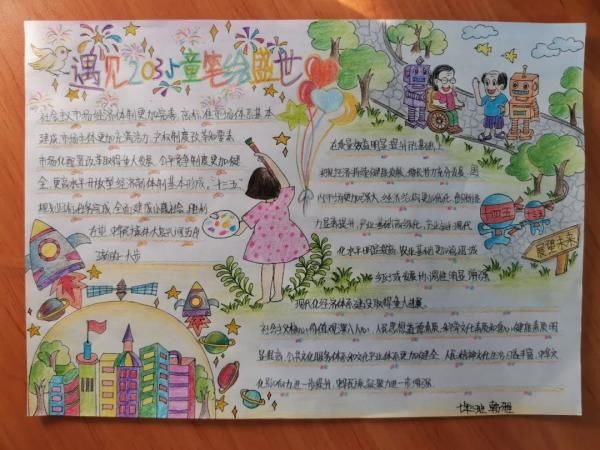 遇见2035童笔绘盛世
社会主义市场经济体制更加完善，高标准市场体系基本
建成，市场主体更加充满活力，产权制度改革和要素
市场化配置改革取得重大进展，公平竞争制度更加健
全，更高水平开放型经济新体制基本形成。"十三五"
规划目标任务完成，全面建成小康社会 胜利
在望，中华民族伟大复兴向前
迈出 大步
在质量效益明显提升的基础上
实现经济持续健康发展，增长潜力充分发挥，国
内市场更加强大，经济结构更加优化，创新能
力显著提升，产业基础高级化、产业链现代
化水平明显提高，农业基础更加稳固，城
乡区域发展协调性明显增强
现代化经济体系建设取得重大进展
社会主义核心价值观深入人心，人民思想道德素质、科学文化素质和身心健康素质明
显提高，公共文化服务体系和文化产业体系更加健全，人民精神文化生活日益丰富，中华文
化影响力进一步提升，中华民族凝聚力进一步增强
十四五
十三五
展望未来